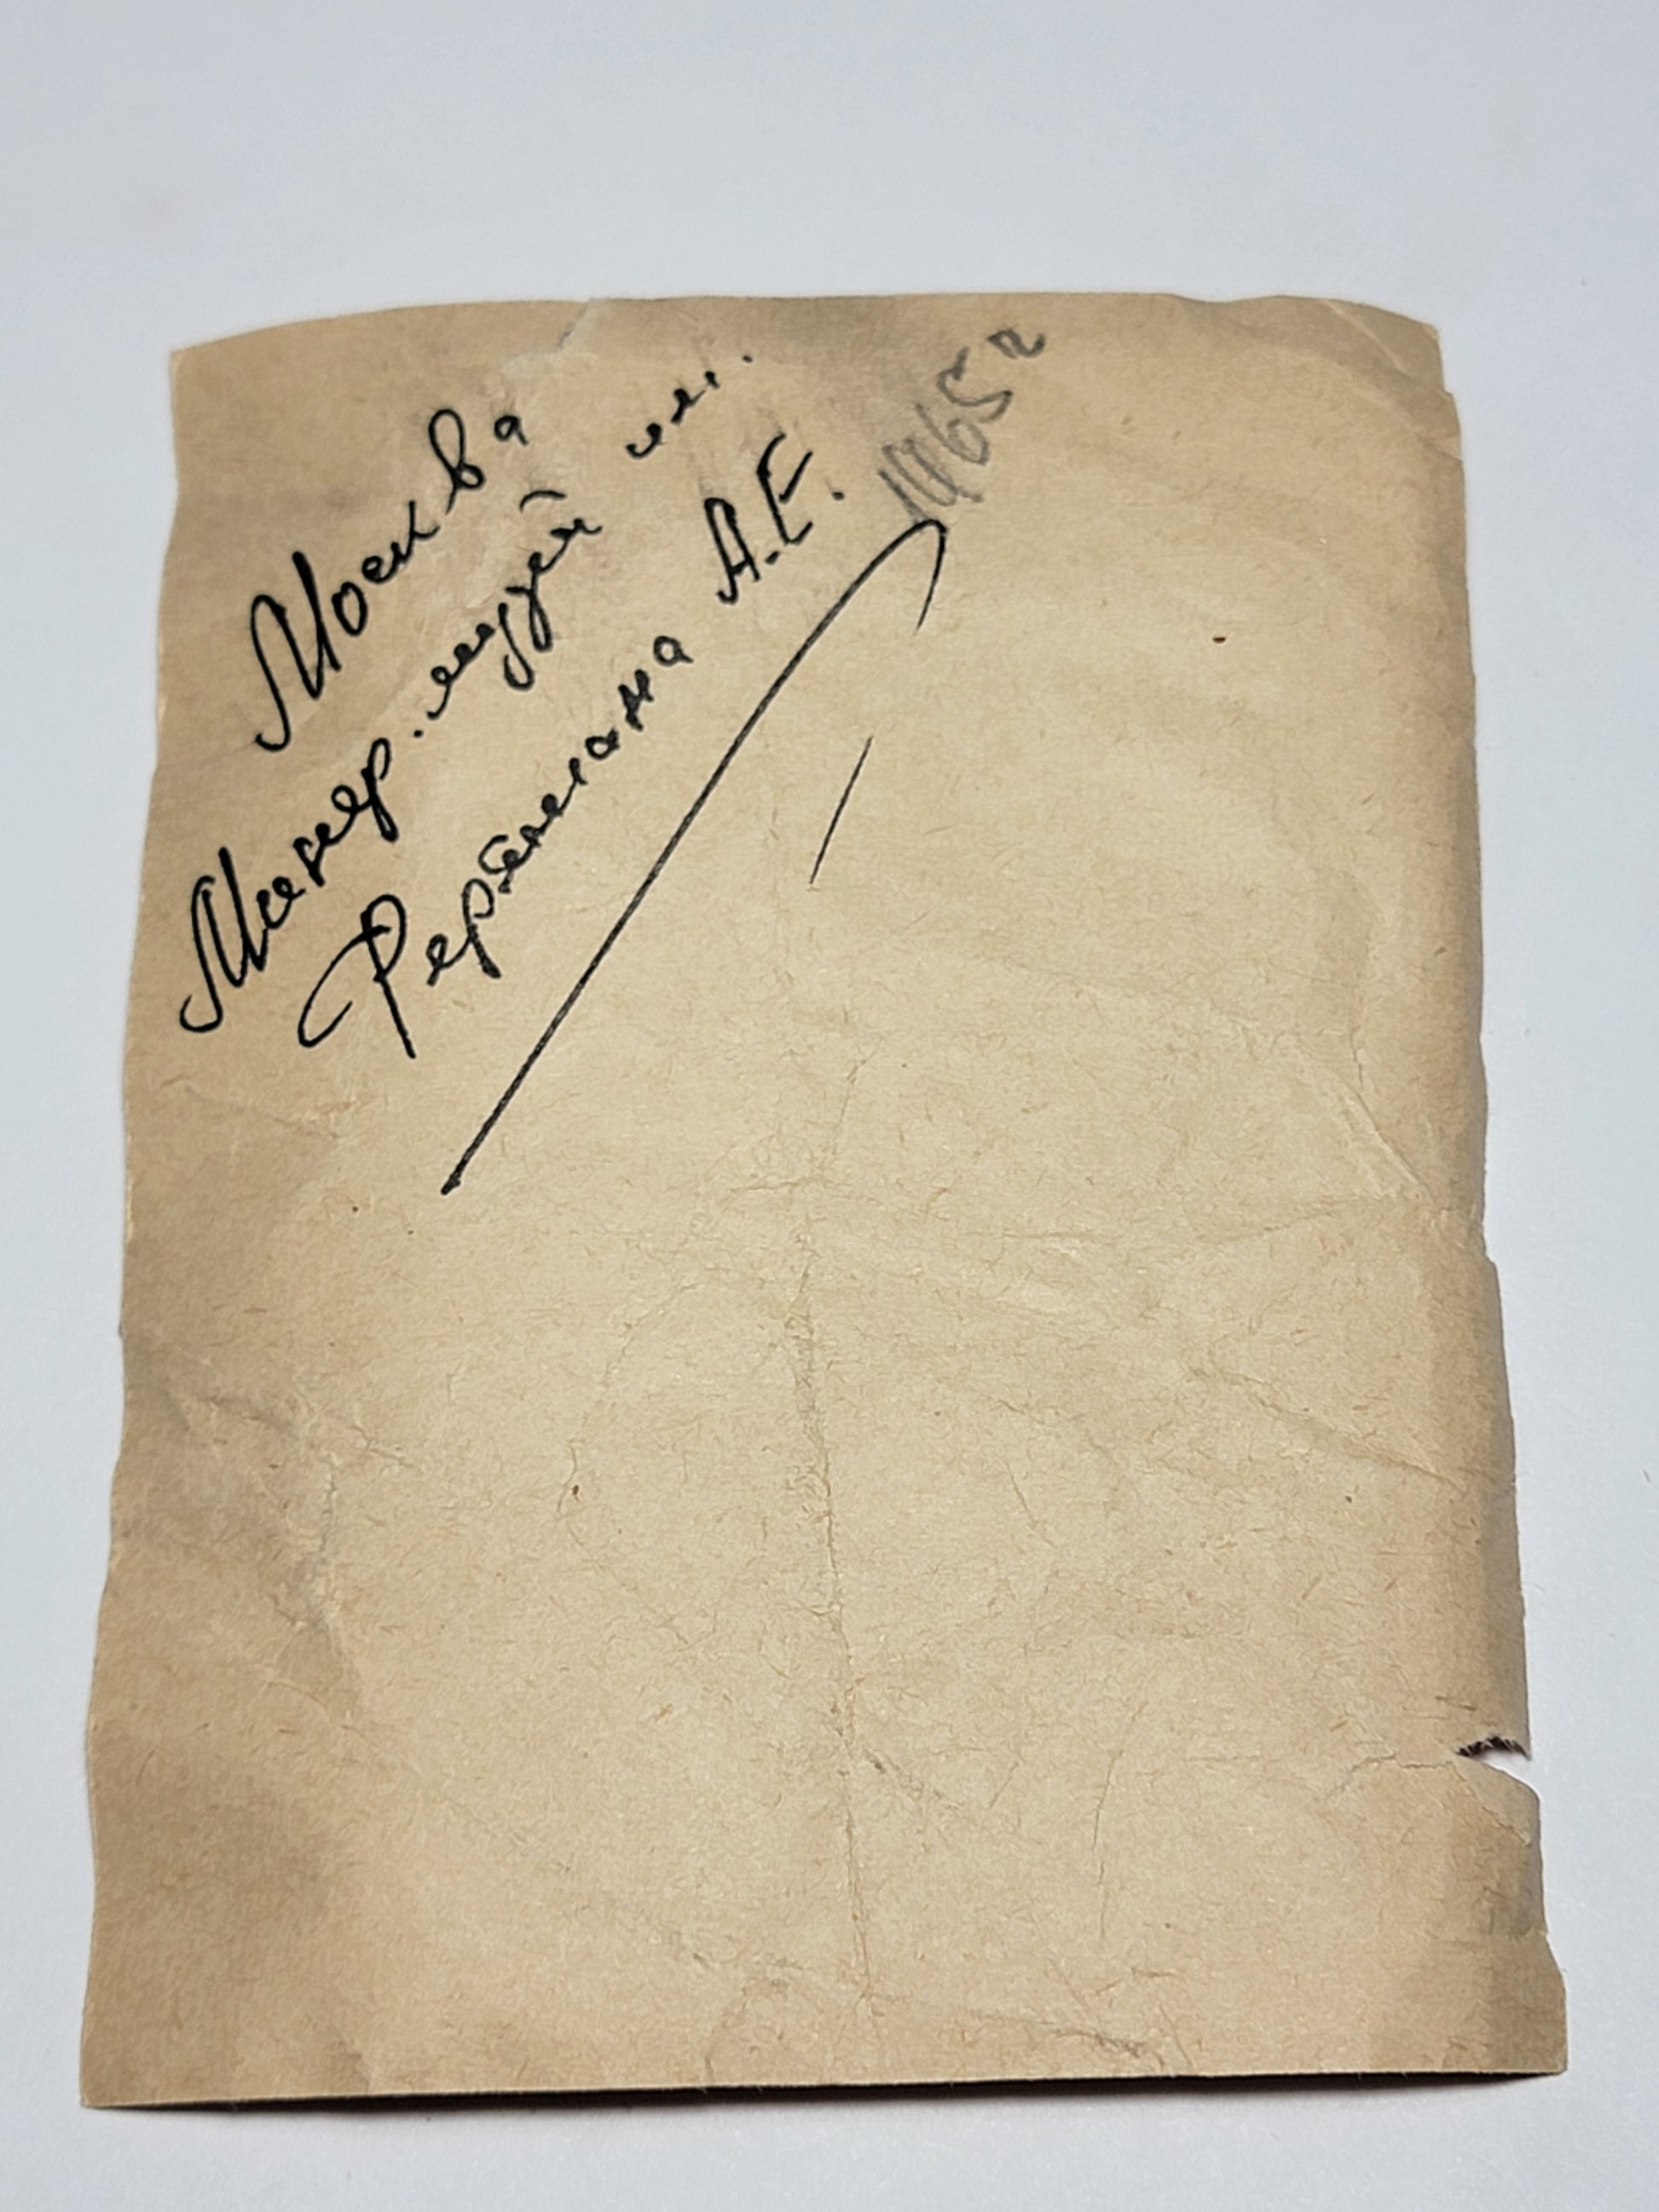 Москва
Минер. музей им.
Ферсмана А.Е.
1965 г